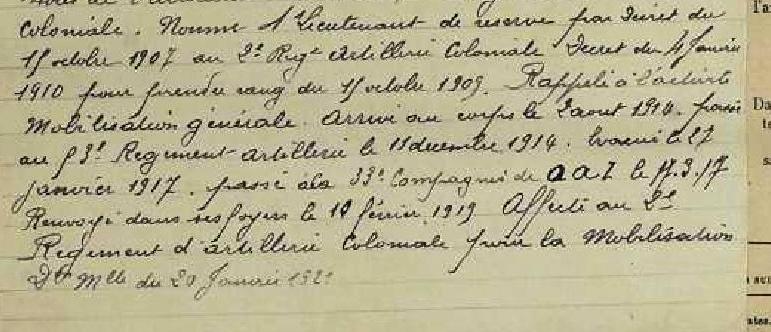 Coloniale. Nommé 1r Lieutenant de réserve par Décret du
15 octobre 1907 au 2e Regt Artillerie Coloniale Decret du 4 Janvier
1910 pour prendre rang du 15 octobre 1909. Rappelé à l'activité
Mobilisation générale. Arrivé au corps le 2 aout 1914. passé
au 3e Regiment artillerie le 11 decembre 1914. Evacué le 27
janvier 1917. passé à la 33e Compagnie de a a T le 17.3.17
Renvoyé dans ses foyers le février 1919 Affecté au 2e
Regiment d'artillerie Coloniale pour la Mobilisation
Don Mlle du 20 Janvier 1921
Da